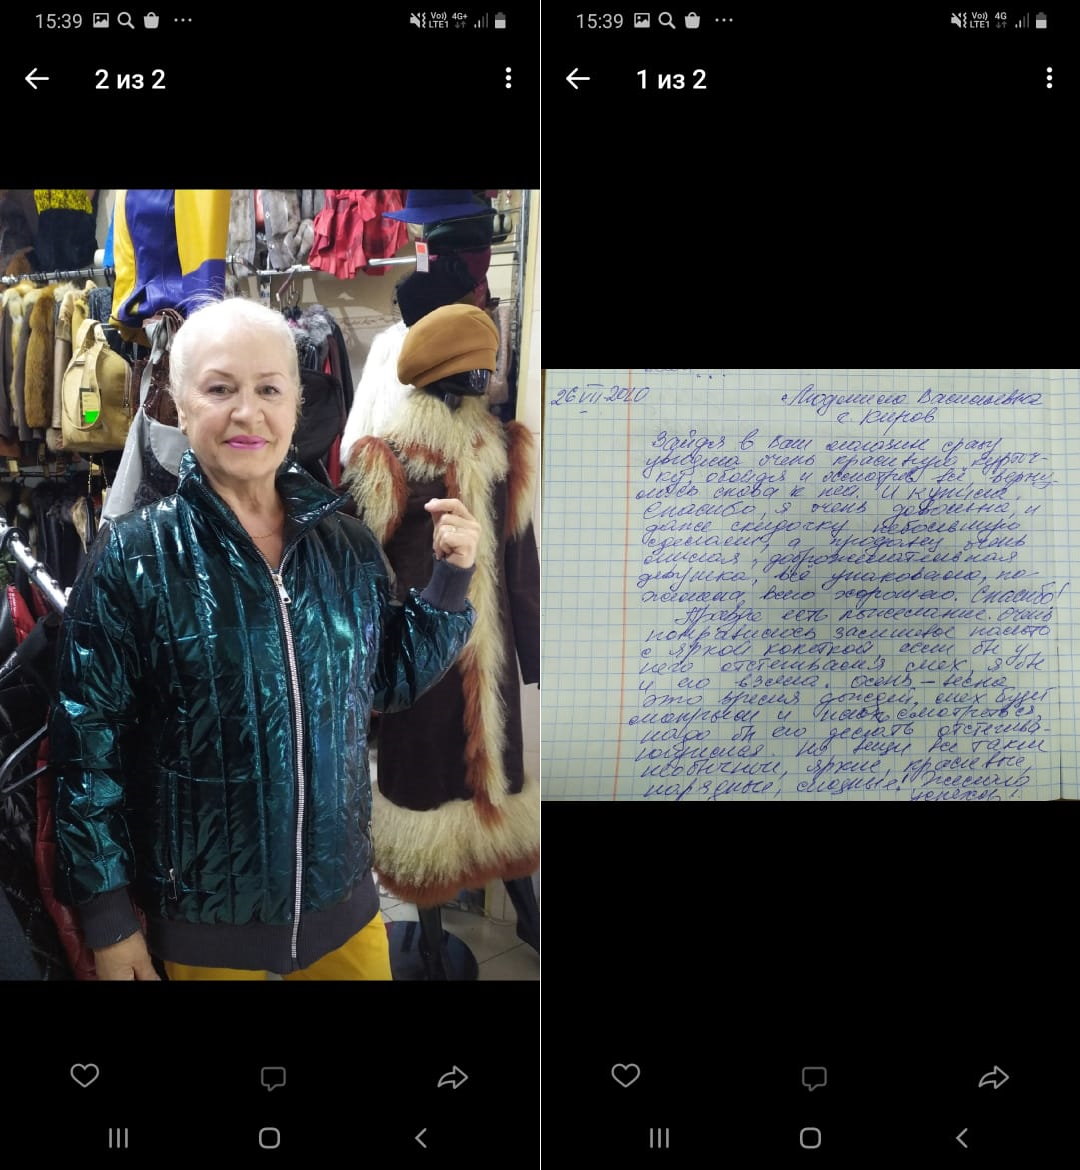 15:39
Vo)) 4G+
LTE1
2 из 2
15:39
Vo)) 4G
LTE1
1 из 2
26 VII-2020 Людмила Васильевна
г. Киров
Зайдя в Ваш магазин сразу
увидела очень красивую курточ-
ку, обойдя и осмотрев всё верну-
лась снова к ней. И купила.
Спасибо, я очень довольна, и
даже скидочку небольшую
сделали, а продавец очень
милая, доброжелательная
девушка, всё упаковала, по-
желала всего хорошего. Спасибо!
Правда есть пожелание. Очень
понравилось замшевое пальто
с яркой кокеткой если бы у
него отстегивался мех, я бы
и его взяла. Осень-весна
это время дождей, мех будет
мокрым и смотреться,
надо бы его делать отстегива-
ющимся. Но вещи все такие
необычные, яркие, красивые,
нарядные, модные. Желаю
успехов!